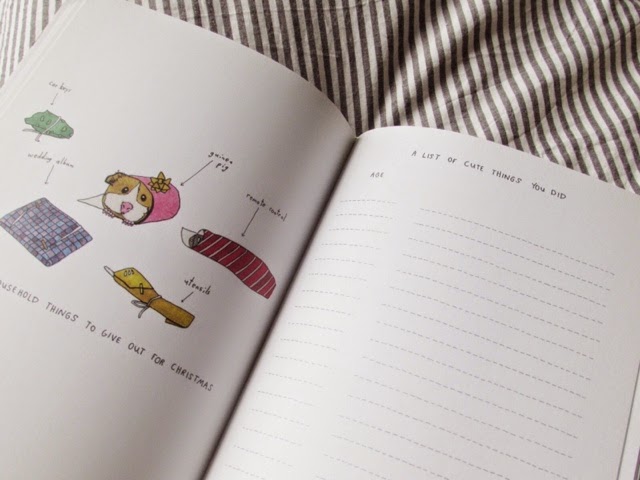 car keys
wedding album
guinea
pig
remote control
utensils
HOUSEHOLD THINGS TO GIVE OUT FOR CHRISTMAS
A LIST OF CUTE THINGS YOU DID
AGE